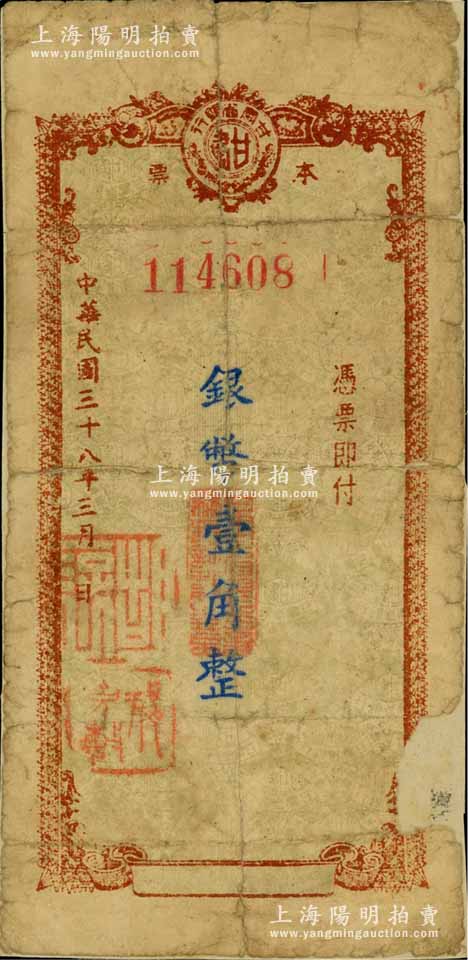 上海陽明拍賣
www.yangmingauction.com
甘肅省銀行
甘
本票
114608
憑票即付
銀幣壹角整
中華民國三十八年三月 日
上海陽明拍賣
www.yangmingauction.com
上海陽明拍賣
www.yangmingauction.com